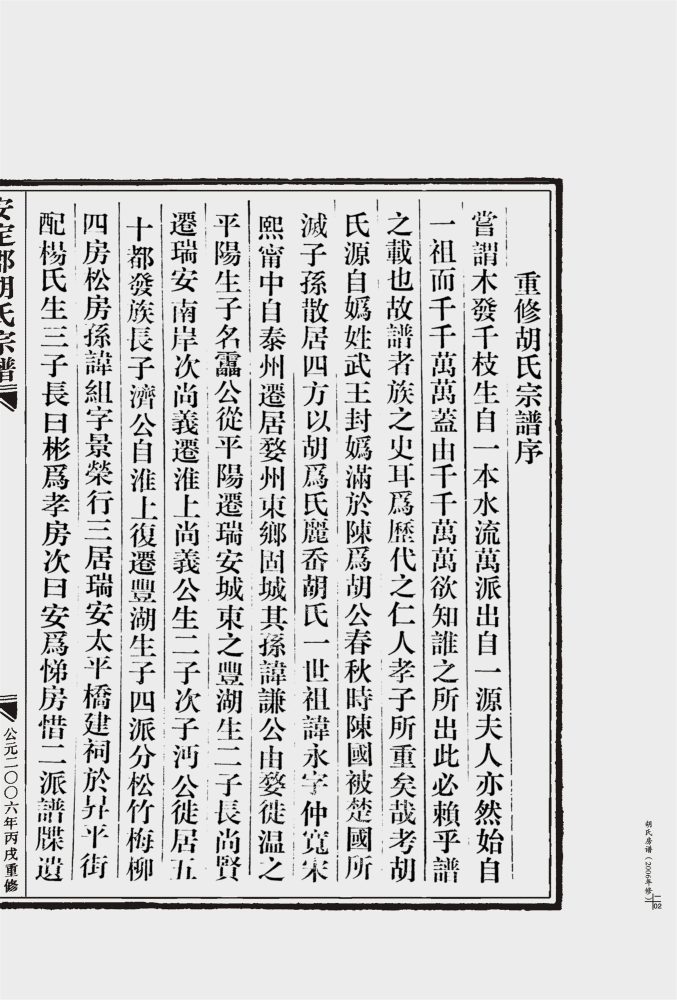 重修胡氏宗譜序
嘗謂木發千枝生自一本水流萬派出自一源夫人亦然始自
一祖而千千萬萬蓋由千千萬萬欲知誰之所出此必賴乎譜
之載也故譜者族之史耳爲歷代之仁人孝子所重矣哉考胡
氏源自嬀姓武王封嬀滿於陳爲胡公春秋時陳國被楚國所
滅子孫散居四方以胡爲氏麗岙胡氏一世祖諱永字仲寬宋
熙甯中自泰州遷居婺州東鄉固城其孫諱謙公由婺徙温之
平陽生子名靐公從平陽遷瑞安城東之豐湖生二子長尚賢
遷瑞安南岸次尚義遷淮上尚義公生二子次子沔公徙居五
十都發族長子濟公自淮上復遷豐湖生子四派分松竹梅柳
四房松房孫諱組字景榮行三居瑞安太平橋建祠於昇平街
配楊氏生三子長曰彬爲孝房次曰安爲悌房惜二派譜牒遺
安定郡胡氏宗譜
公元二〇〇六年丙戌重修
胡氏房谱（2006年修）
二
02